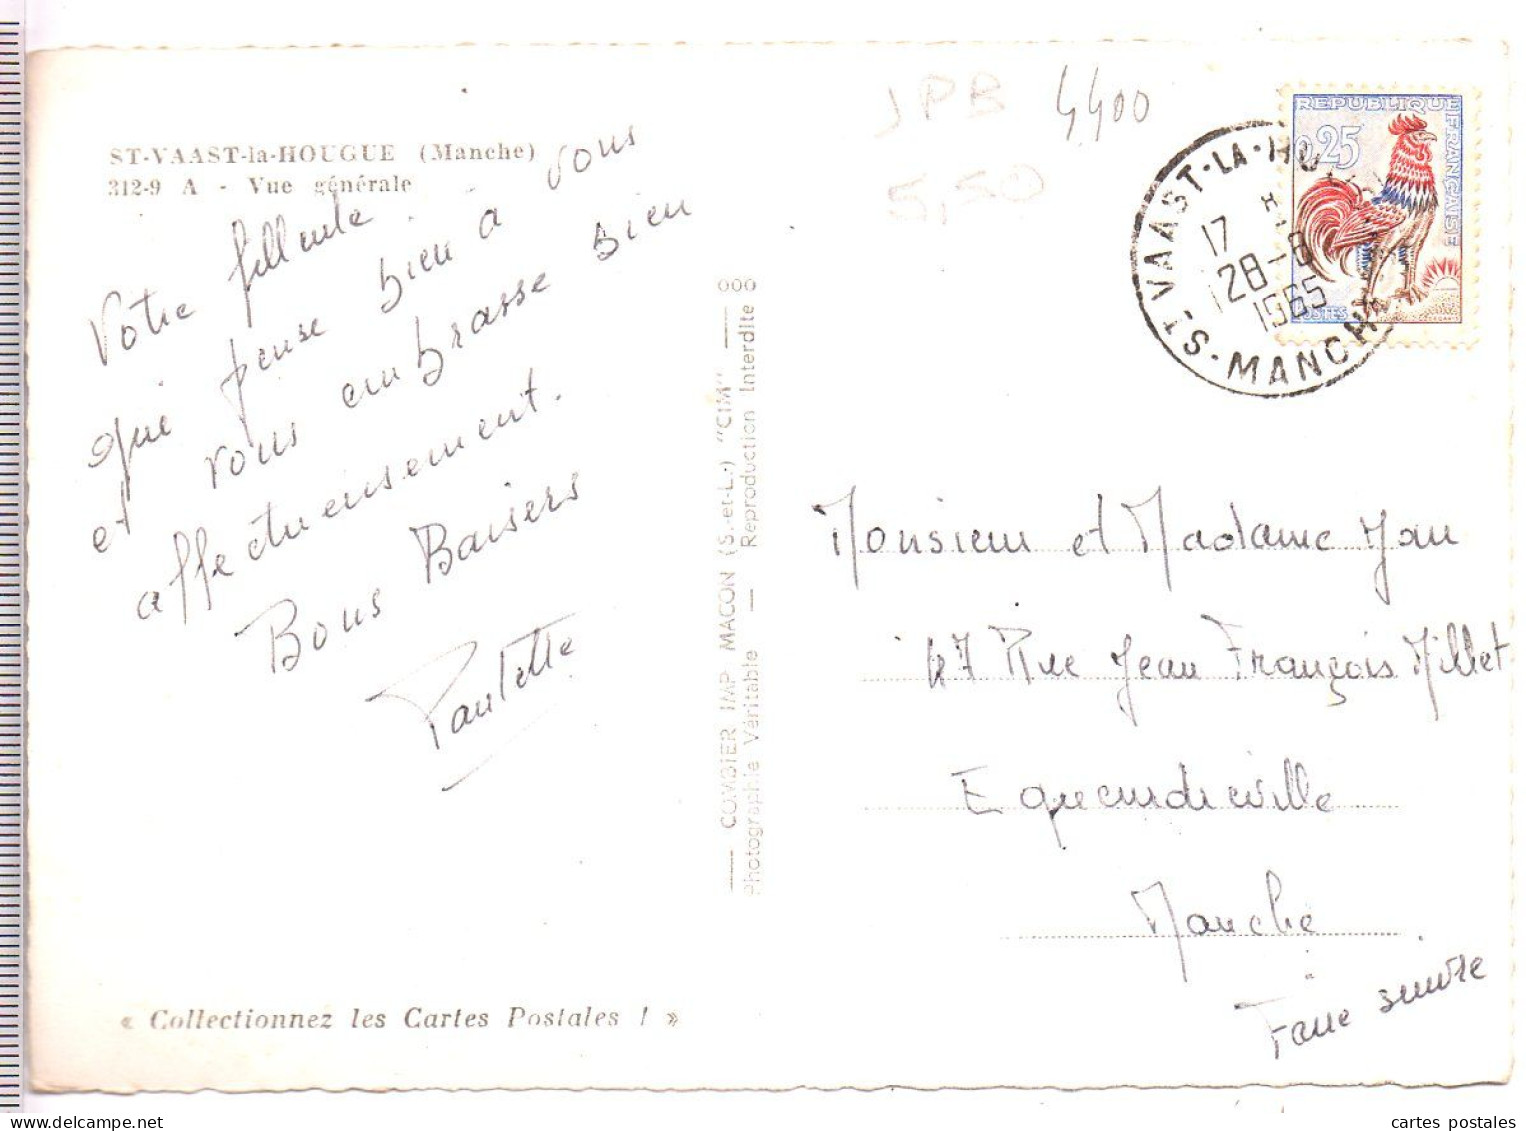 ST-VAAST-la-HOUGUE (Manche)
312-9 A - Vue générale
Votre fillente
qui pense bien à vous
et vous embrasse bien
affectueusement.
Bons Baisers
Paulette
« Collectionnez les Cartes Postales ! »
COMBIER IMP MACON (S.-et-L.) "CIM"
Photographie Véritable — Reproduction Interdite
JPB 4400
5,50
ST-VAAST-LA-HOU
17 H
28-8
1965
MANCHE
REPUBLIQUE FRANÇAISE
0,25
POSTES
Monsieur et Madame Jan
47 Rue Jean François Millet
Equeurdreville
Manche
Faire suivre
cartes postales